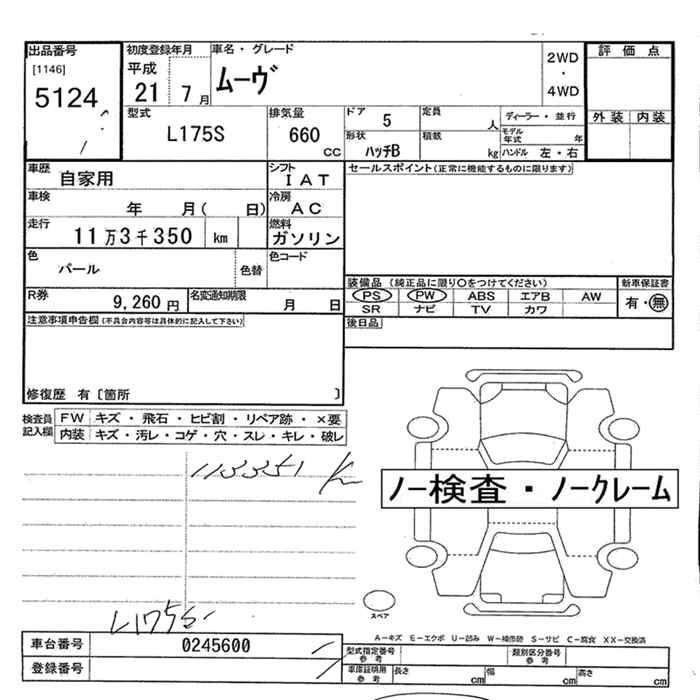 出品番号 初度登録年月 車名・グレード 評価点
[1146] 平成 ムーヴ 2WD・4WD
5124 21 7月
型式 排気量 ドア 5 定員 人 ディーラー・並行 外装 内装
L175S 660cc 形状 ハッチB 積載 kg モデル年式 年
ハンドル 左・右
車歴 自家用 シフト IAT セールスポイント(正常に機能するものに限ります)
車検 年 月( 日) 冷房 AC
走行 11万3千350 km 燃料 ガソリン
色 パール 色替 色コード
装備品(純正品に限り〇をつけてください) 新車保証書
R券 9,260円 名変通知期限 月 日 PS PW ABS エアB AW 有・無
SR ナビ TV カワ
注意事項申告欄(不具合内容等は具体的に記入して下さい) 後日品
修復歴 有〔箇所 〕
検査員記入欄 FW キズ・飛石・ヒビ割・リペア跡・×要
内装 キズ・汚レ・コゲ・穴・スレ・キレ・破レ
113351 K
ノー検査・ノークレーム
スペア
L175S-
A-キズ E-エクボ U-凹み W-補修跡 S-サビ C-腐食 XX-交換済
車台番号 0245600 型式指定番号 参考 類別区分番号 参考
登録番号 車庫証明用 参考 長さ cm 幅 cm 高さ cm